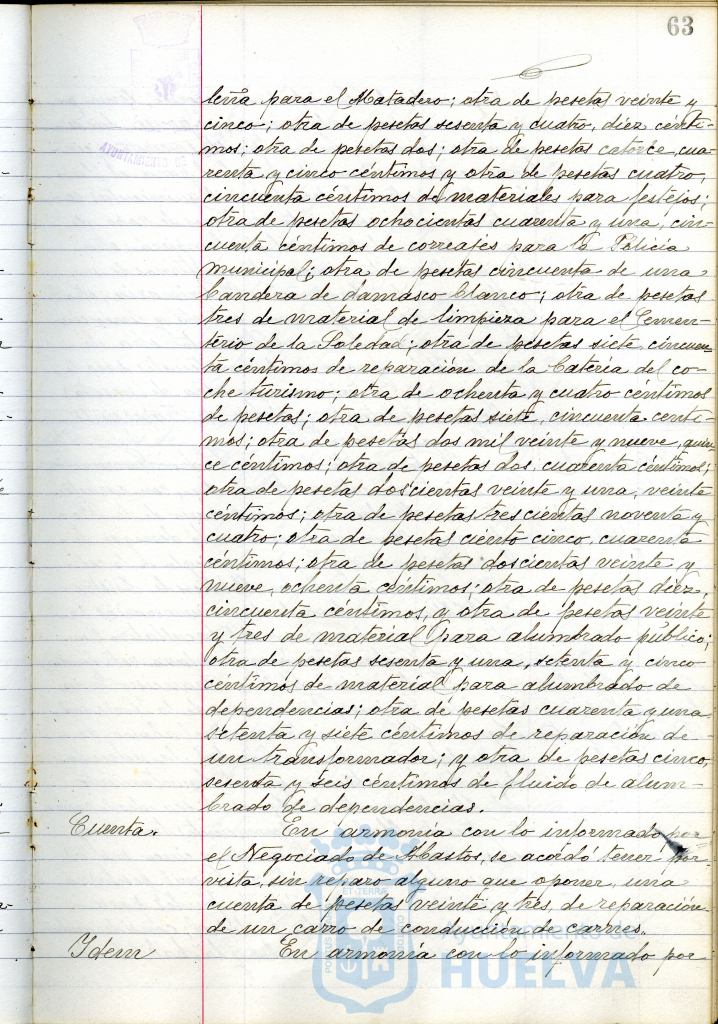 63
leña para el Matadero; otra de pesetas veinte y
cinco; otra de pesetas sesenta y cuatro, diez cénti-
mos; otra de pesetas dos; otra de pesetas catorce, cua-
renta y cinco céntimos y otra de pesetas cuatro,
cincuenta céntimos de materiales para festejos;
otra de pesetas ochocientas cuarenta y una, cin-
cuenta céntimos de correajes para la Policía
municipal; otra de pesetas cincuenta de una
bandera de damasco blanco; otra de pesetas
tres de material de limpieza para el Cemen-
terio de la Soledad; otra de pesetas siete, cincuen-
ta céntimos de reparación de la batería del co-
che turismo; otra de ochenta y cuatro céntimos
de pesetas; otra de pesetas siete, cincuenta cénti-
mos; otra de pesetas dos mil veinte y nueve, quin-
ce céntimos; otra de pesetas dos, cuarenta céntimos;
otra de pesetas doscientas veinte y una, veinte
céntimos; otra de pesetas trescientas noventa y
cuatro; otra de pesetas ciento cinco, cuarenta
céntimos; otra de pesetas doscientas veinte y
nueve, ochenta céntimos; otra de pesetas diez,
cincuenta céntimos, y otra de pesetas veinte
y tres de material para alumbrado público;
otra de pesetas sesenta y una, setenta y cinco
céntimos de material para alumbrado de
dependencias; otra de pesetas cuarenta y una
setenta y siete céntimos de reparación de
un transformador; y otra de pesetas cinco,
sesenta y seis céntimos de fluido de alum-
brado de dependencias.
Cuenta. En armonía con lo informado por
el Negociado de Abastos, se acordó tener por
vista, sin reparo alguno que oponer, una
cuenta de pesetas veinte y tres, de reparación
de un carro de conducción de carnes.
Idem En armonía con lo informado por
Ayuntamiento de
HUELVA